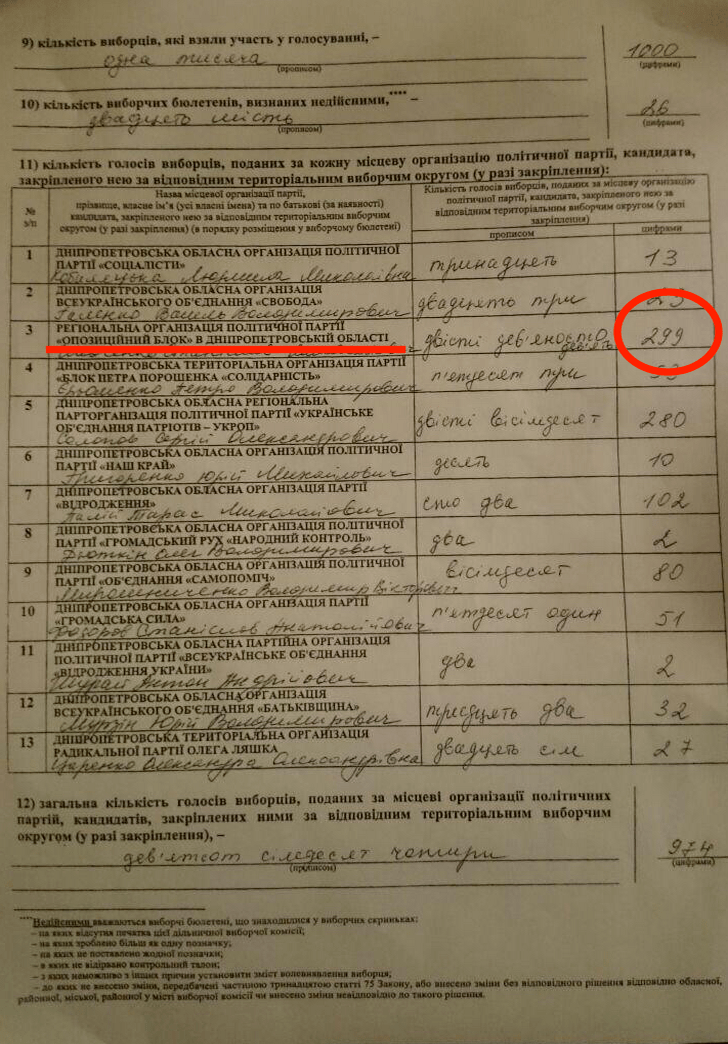 9) кількість виборців, які взяли участь у голосуванні, –
одна тисяча 1000
(прописом) (цифрами)
10) кількість виборчих бюлетенів, визнаних недійсними,**** –
двадцять шість 26
(прописом) (цифрами)
11) кількість голосів виборців, поданих за кожну місцеву організацію політичної партії, кандидата,
закріпленого нею за відповідним територіальним виборчим округом (у разі закріплення):
№ з/п
Назва місцевої організації партії,
прізвище, власне ім’я (усі власні імена) та по батькові (за наявності)
кандидата, закріпленого нею за відповідним територіальним виборчим
округом (у разі закріплення) (в порядку розміщення у виборчому бюлетені)
Кількість голосів виборців, поданих за місцеву організацію
політичної партії, кандидата, закріпленого нею за
відповідним територіальним виборчим округом (у разі
закріплення)
прописом цифрами
1 ДНІПРОПЕТРОВСЬКА ОБЛАСНА ОРГАНІЗАЦІЯ ПОЛІТИЧНОЇ
ПАРТІЇ «СОЦІАЛІСТИ»
Людмила Миколаївна тринадцять 13
2 ДНІПРОПЕТРОВСЬКА ОБЛАСНА ОРГАНІЗАЦІЯ
ВСЕУКРАЇНСЬКОГО ОБ’ЄДНАННЯ «СВОБОДА»
Василь Володимирович двадцять три 23
3 РЕГІОНАЛЬНА ОРГАНІЗАЦІЯ ПОЛІТИЧНОЇ ПАРТІЇ
«ОПОЗИЦІЙНИЙ БЛОК» В ДНІПРОПЕТРОВСЬКІЙ ОБЛАСТІ
двісті дев'яносто дев'ять 299
4 ДНІПРОПЕТРОВСЬКА ТЕРИТОРІАЛЬНА ОРГАНІЗАЦІЯ ПАРТІЇ
«БЛОК ПЕТРА ПОРОШЕНКА «СОЛІДАРНІСТЬ»
Петро Володимирович п'ятдесят три 53
5 ДНІПРОПЕТРОВСЬКА ОБЛАСНА РЕГІОНАЛЬНА
ПАРТОРГАНІЗАЦІЯ ПОЛІТИЧНОЇ ПАРТІЇ «УКРАЇНСЬКЕ
ОБ’ЄДНАННЯ ПАТРІОТІВ – УКРОП»
Сергій Олександрович двісті вісімдесят 280
6 ДНІПРОПЕТРОВСЬКА ОБЛАСНА ОРГАНІЗАЦІЯ ПОЛІТИЧНОЇ
ПАРТІЇ «НАШ КРАЙ»
Григоренко Юрій Михайлович десять 10
7 ДНІПРОПЕТРОВСЬКА ОБЛАСНА ОРГАНІЗАЦІЯ ПАРТІЇ
«ВІДРОДЖЕННЯ»
Палій Тарас Миколайович сто два 102
8 ДНІПРОПЕТРОВСЬКА ОБЛАСНА ОРГАНІЗАЦІЯ ПОЛІТИЧНОЇ
ПАРТІЇ «ГРОМАДСЬКИЙ РУХ «НАРОДНИЙ КОНТРОЛЬ»
Олег Володимирович два 2
9 ДНІПРОПЕТРОВСЬКА ОБЛАСНА ОРГАНІЗАЦІЯ ПОЛІТИЧНОЇ
ПАРТІЇ «ОБ’ЄДНАННЯ «САМОПОМІЧ»
Мирошниченко Володимир Вікторович вісімдесят 80
10 ДНІПРОПЕТРОВСЬКА ОБЛАСНА ОРГАНІЗАЦІЯ ПАРТІЇ
«ГРОМАДСЬКА СИЛА»
Станіслав Анатолійович п'ятдесят один 51
11 ДНІПРОПЕТРОВСЬКА ОБЛАСНА ПАРТІЙНА ОРГАНІЗАЦІЯ
ПОЛІТИЧНОЇ ПАРТІЇ «ВСЕУКРАЇНСЬКЕ ОБ’ЄДНАННЯ
«ВІДРОДЖЕННЯ УКРАЇНИ»
Антон Андрійович два 2
12 ДНІПРОПЕТРОВСЬКА ОБЛАСНА ОРГАНІЗАЦІЯ
ВСЕУКРАЇНСЬКОГО ОБ’ЄДНАННЯ «БАТЬКІВЩИНА»
Юрій Володимирович тридцять два 32
13 ДНІПРОПЕТРОВСЬКА ТЕРИТОРІАЛЬНА ОРГАНІЗАЦІЯ
РАДИКАЛЬНОЇ ПАРТІЇ ОЛЕГА ЛЯШКА
Царенко Олександра Олександрівна двадцять сім 27
12) загальна кількість голосів виборців, поданих за місцеві організації політичних
партій, кандидатів, закріплених ними за відповідним територіальним виборчим
округом (у разі закріплення), –
дев'ятсот сімдесят чотири 974
(прописом) (цифрами)
****Недійсними вважаються виборчі бюлетені, що знаходилися у виборчих скриньках:
– на яких відсутня печатка цієї дільничної виборчої комісії;
– на яких зроблено більш як одну позначку;
– на яких не поставлено жодної позначки;
– в яких не відірвано контрольний талон;
– з яких неможливо з інших причин установити зміст волевиявлення виборця;
– до яких не внесено зміни, передбачені частиною тринадцятою статті 75 Закону, або внесено зміни без відповідного рішення відповідно обласної,
районної, міської, районної у місті виборчої комісії чи внесено зміни невідповідно до такого рішення.